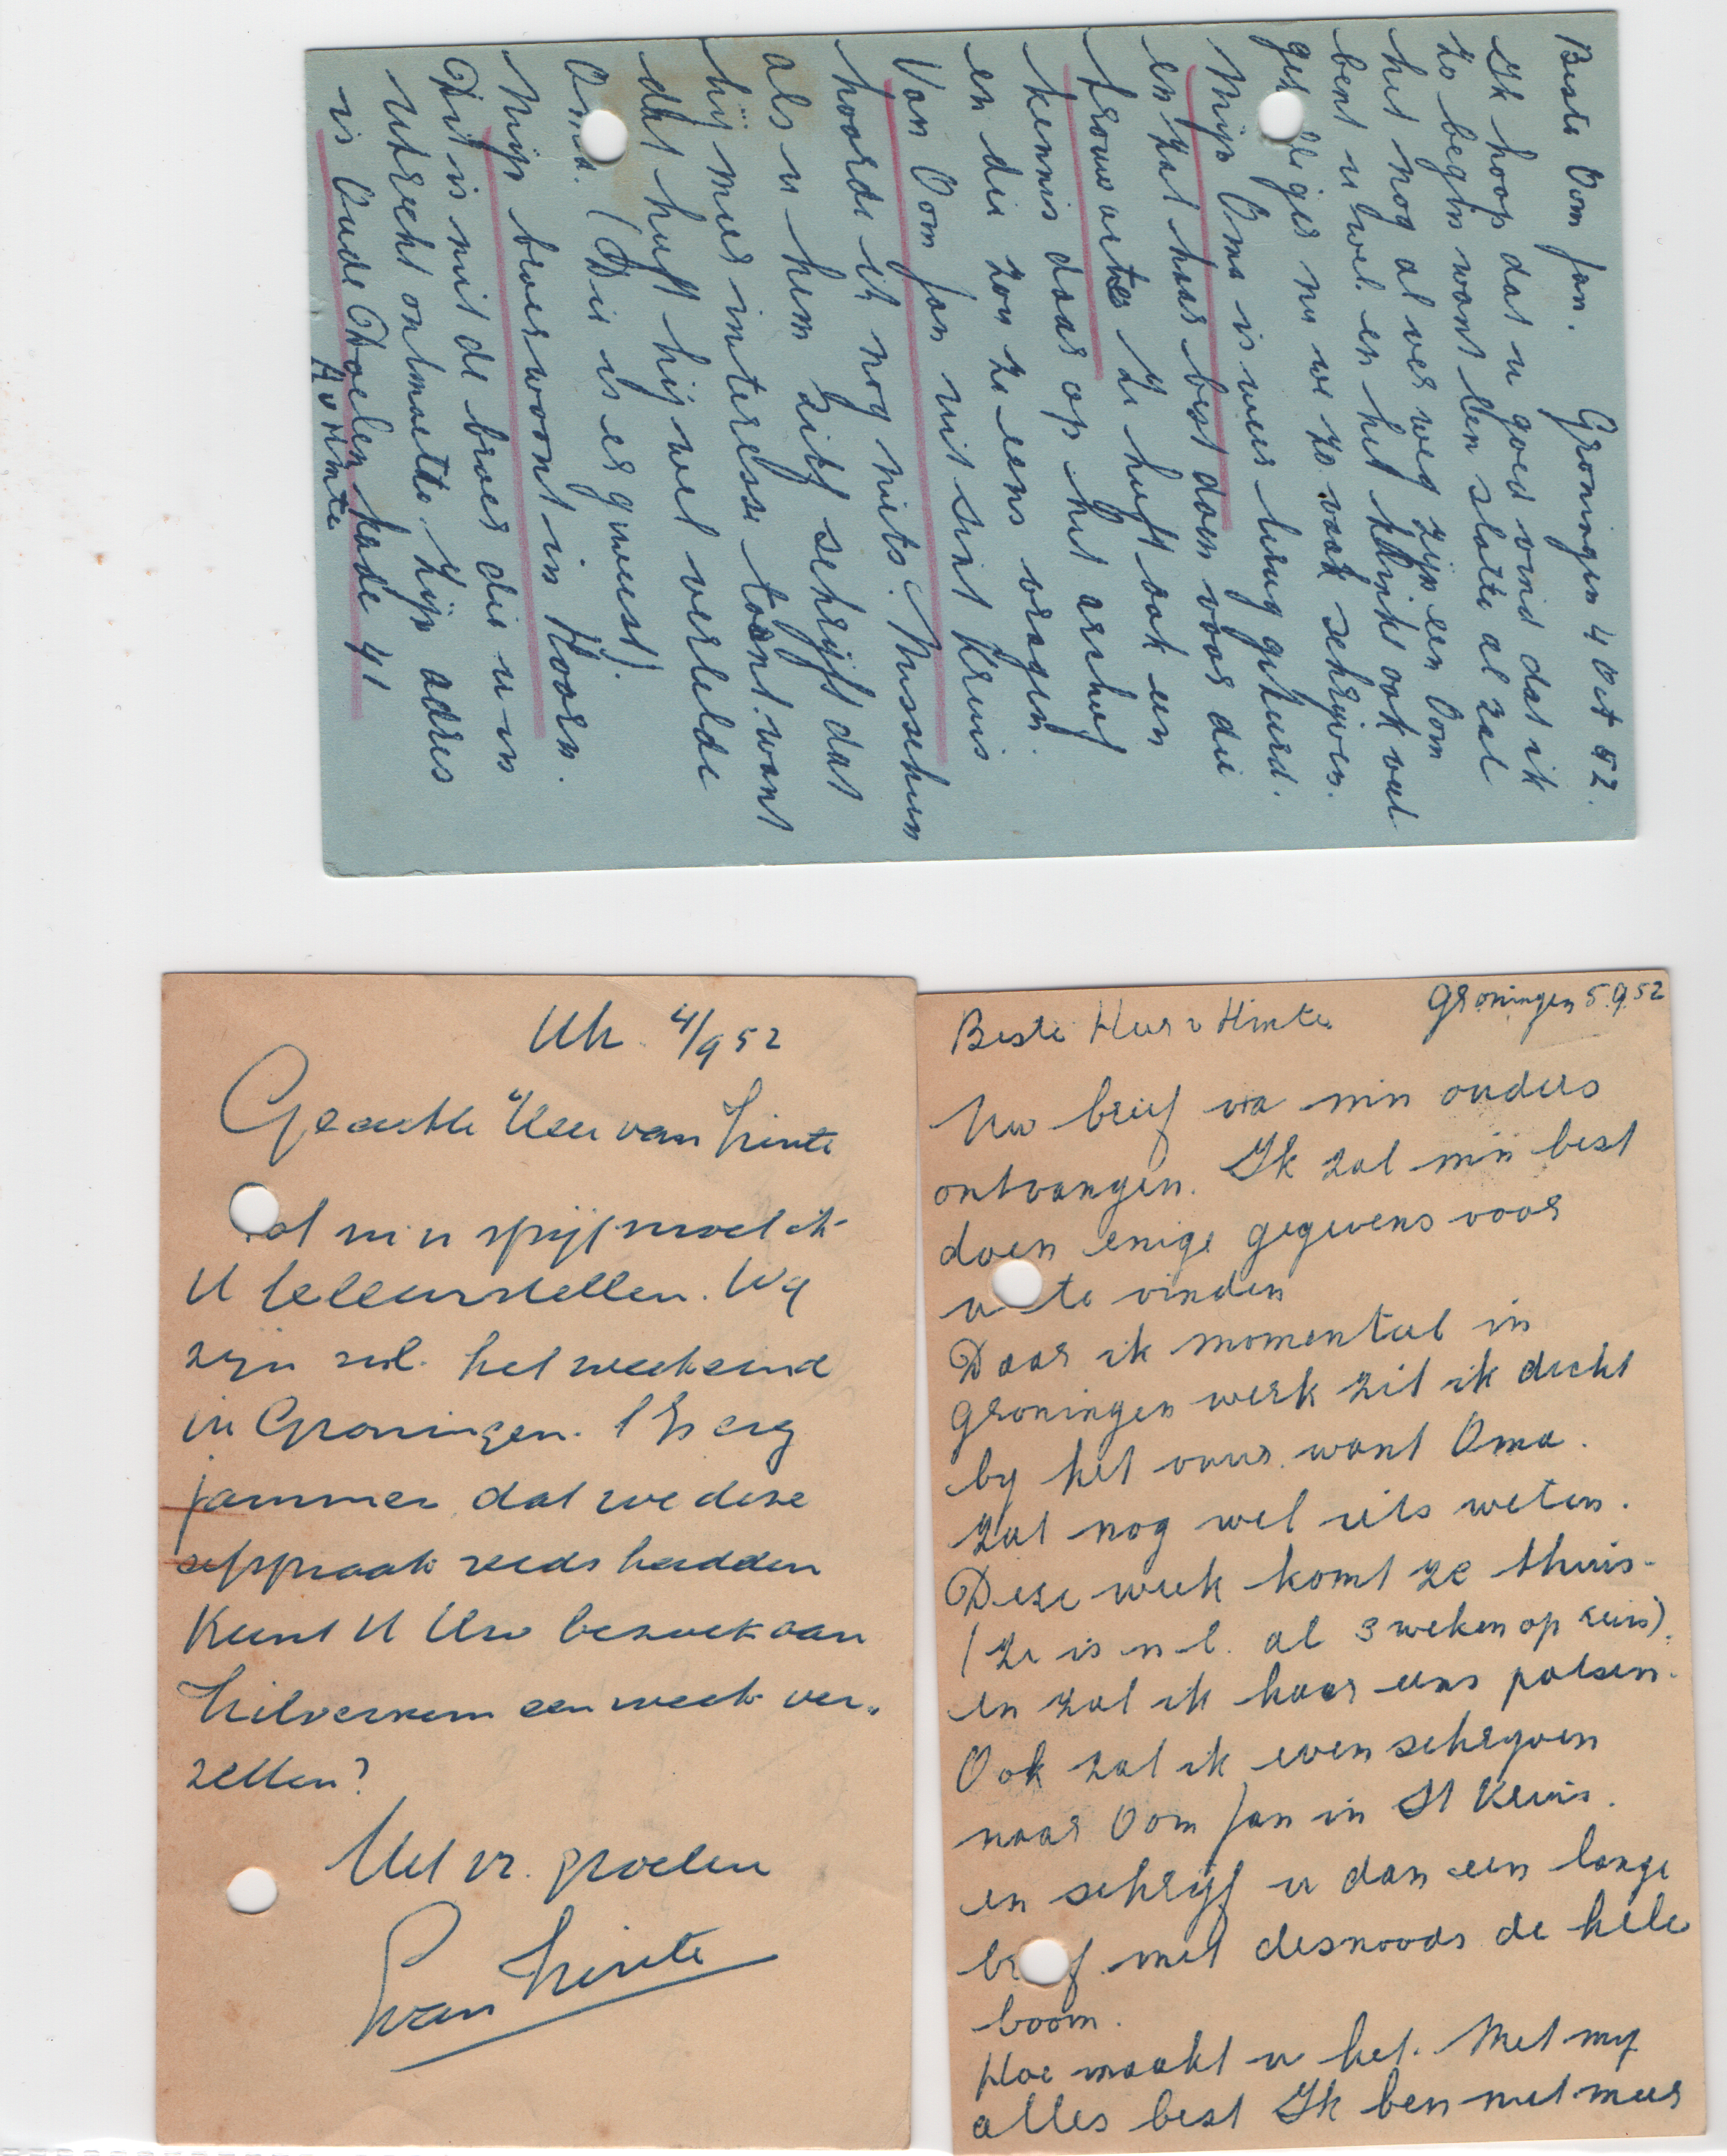 Beste Oom Jan. Groningen 4 Oct 52.
Ik hoop dat u goed vind dat ik
zo begin want ten slotte al zal
het nog al ver weg zijn een Oom
bent u wel en het klinkt ook veel
gezelliger nu we zo vaak schrijven.
Mijn Oma is weer terug gekeerd.
en zal haar best doen voor die
trouwactes ze heeft ook een
kennis daar op het archief
en die zou ze eens vragen.
Van Oom Jan uit sint Kruis
hoorde ik nog niets. Misschien
als u hem zelf schrijft dat
hij meer interesse toont. want
dat heeft hij wel vertelde
Oma. (Die is er geweest).
Mijn broer woont in Hoorn.
Dit is niet de broer die u in
Utrecht ontmoette. Zijn adres
is Oude Doelenkade 41
A v Hinte
Uh. 4/9 52
Geachte Heer van Hinte
Tot mijn spijt moet ik
U teleurstellen. Wij
zijn nl. het weekeind
in Groningen. 't Is erg
jammer dat we deze
afspraak reeds hadden
Kunt U Uw bezoek aan
Hilversum een week ver-
zetten?
Met vr. groeten
van Hinte
Groningen 5.9.52
Beste Heer v Hinte
Uw brief via mijn ouders
ontvangen. Ik zal mijn best
doen enige gegevens voor
u te vinden
Daar ik momenteel in
Groningen werk zit ik dicht
bij het vuur. want Oma.
zal nog wel iets weten.
Deze week komt ze thuis.
(ze is n.l. al 3 weken op reis).
en zal ik haar eens polsen.
Ook zal ik even schrijven
naar Oom Jan in St Kruis.
en schrijf u dan een lange
brief met desnoods de hele
boom.
Hoe maakt u het. Met mij
alles best Ik ben met meer